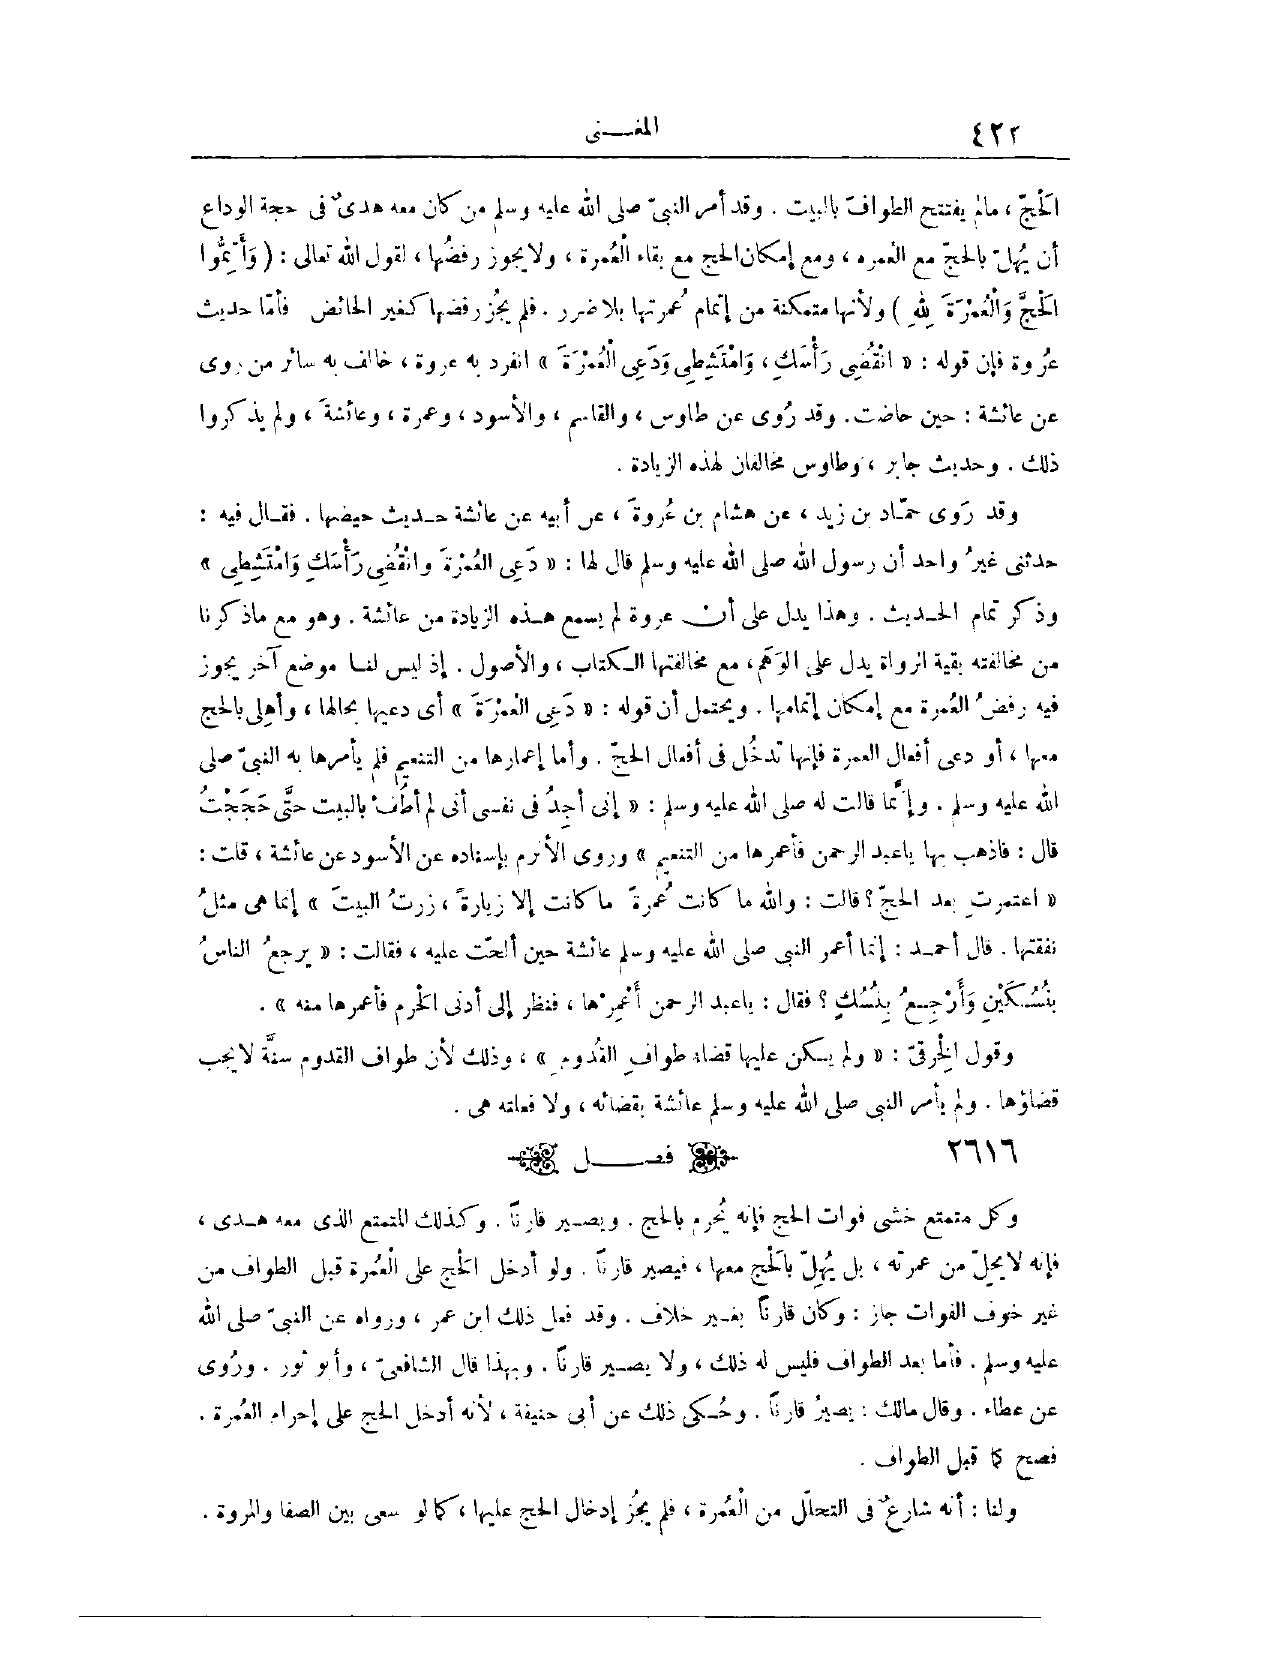 ٤٢٢
المغـــنى
الْحَجّ ، مالم يفتتح الطوافَ بالبيت . وقد أمر النبىّ صلى الله عليه وسلم من كان معه هدىٌ فى حجة الوداع
أن يُهلّ بالحجّ مع العمره ، ومع إمكان الحج مع بقاء الْعُمرة ، ولا يجوز رفضُها ، لقول الله تعالى : ( وَأَتِمُّوا
الْحَجَّ وَالْعُمْرَةَ لِلهِ ) ولأنها متمكنة من إتمام عُمرتها بلا ضرر . فلم يجُز رفضها كغير الحائض فأمّا حديث
عُروة فإن قوله : « انْقُضِى رَأْسَكِ ، وَامْتَشِطِى وَدَعِى الْعُمْرَةَ » انفرد به عروة ، خالف به سائر من روى
عن عائشة : حين حاضت . وقد رُوى عن طاوس ، والقاسم ، والأسود ، وعمرة ، وعائشةَ ، ولم يذكروا
ذلك . وحديث جابر ، وطاوس مخالفان لهذه الزيادة .
وقد رَوى حمّاد بن زيد ، عن هشام بن عُروةَ ، عن أبيه عن عائشة حـديث حيضها . فقـال فيه :
حدثنى غيرُ واحد أن رسول الله صلى الله عليه وسلم قال لها : « دَعِى العُمْرَةَ وانْقُضِى رَأْسَكِ وَامْتَشِطِى »
وذكر تمام الحـديث . وهذا يدل على أن عروة لم يسمع هـذه الزيادة من عائشة . وهو مع ماذكرنا
من مخالفته بقية الرواة يدل على الوَهَم ، مع مخالفتها الـكتاب ، والأصول . إذ ليس لنـا موضع آخر يجوز
فيه رفضُ العُمرة مع إمكان إتمامها . ويحتمل أن قوله : « دَعِى الْعُمْرَةَ » أى دعيها بحالها ، وأهلى بالحج
معها ، أو دعى أفعال العمرة فإنها تدخُل فى أفعال الحجّ . وأما إعمارها من التنعيم فلم يأمرها به النبىّ صلى
الله عليه وسلم . وإنَّما قالت له صلى الله عليه وسلم : « إنى أجِدُ فى نفسى أنى لم أطُفْ بالبيت حتَّى حَجَجْتُ
قال : فاذهب بها ياعبد الرحمن فأعمرها من التنعيم » وروى الأثرم بإسناده عن الأسود عن عائشة ، قلت :
« اعتمرتِ بعد الحجّ ؟ قالت : والله ما كانت عُمرةً ما كانت إلا زيارةً ، زرتُ البيتَ » إنما هى مثلُ
نفقتها . قال أحمـد : إنما أعمر النبى صلى الله عليه وسلم عائشة حين ألحّت عليه ، فقالت : « يرجعُ الناسُ
بِنُسُـكَيْنِ وَأَرْجِـعُ بِنُسُكٍ ؟ فقال : ياعبد الرحمن أَعْمِرْها ، فنظر إلى أدنى الحرم فأعمرها منه » .
وقول الخرقىّ : « ولم يـكن عليها قضاء طوافِ القُدوم » ، وذلك لأن طواف القدوم سنَّة لا يجب
قضاؤها . ولم يأمر النبى صلى الله عليه وسلم عائشة بقضائه ، ولا فعلته هى .
٢٦١٦
فصـــــل
وكل متمتع خشى فوات الحج فإنه يُحرم بالحج . ويصـير قارناً . وكذلك المتمتع الذى معه هـدى ،
فإنه لا يحِلّ من عمرته ، بل يُهِلّ بالْحَج معها ، فيصير قارناً . ولو أدخل الْحَج على الْعُمرة قبل الطواف من
غير خوف الفوات جاز : وكان قارناً بغـير خلاف . وقد فعل ذلك ابن عمر ، ورواه عن النبىّ صلى الله
عليه وسلم . فأما بعد الطواف فليس له ذلك ، ولا يصـير قارناً . وبهذا قال الشافعىّ ، وأبو ثور . ورُوى
عن عطاء . وقال مالك : يصيرُ قارناً . وحُـكى ذلك عن أبى حنيفة ، لأنه أدخل الحج على إحرام العُمرة .
فصح كما قبل الطواف .
ولنا : أنه شارعٌ فى التحلّل من الْعُمرة ، فلم يجُز إدخال الحج عليها ، كما لو سعى بين الصفا والمروة .